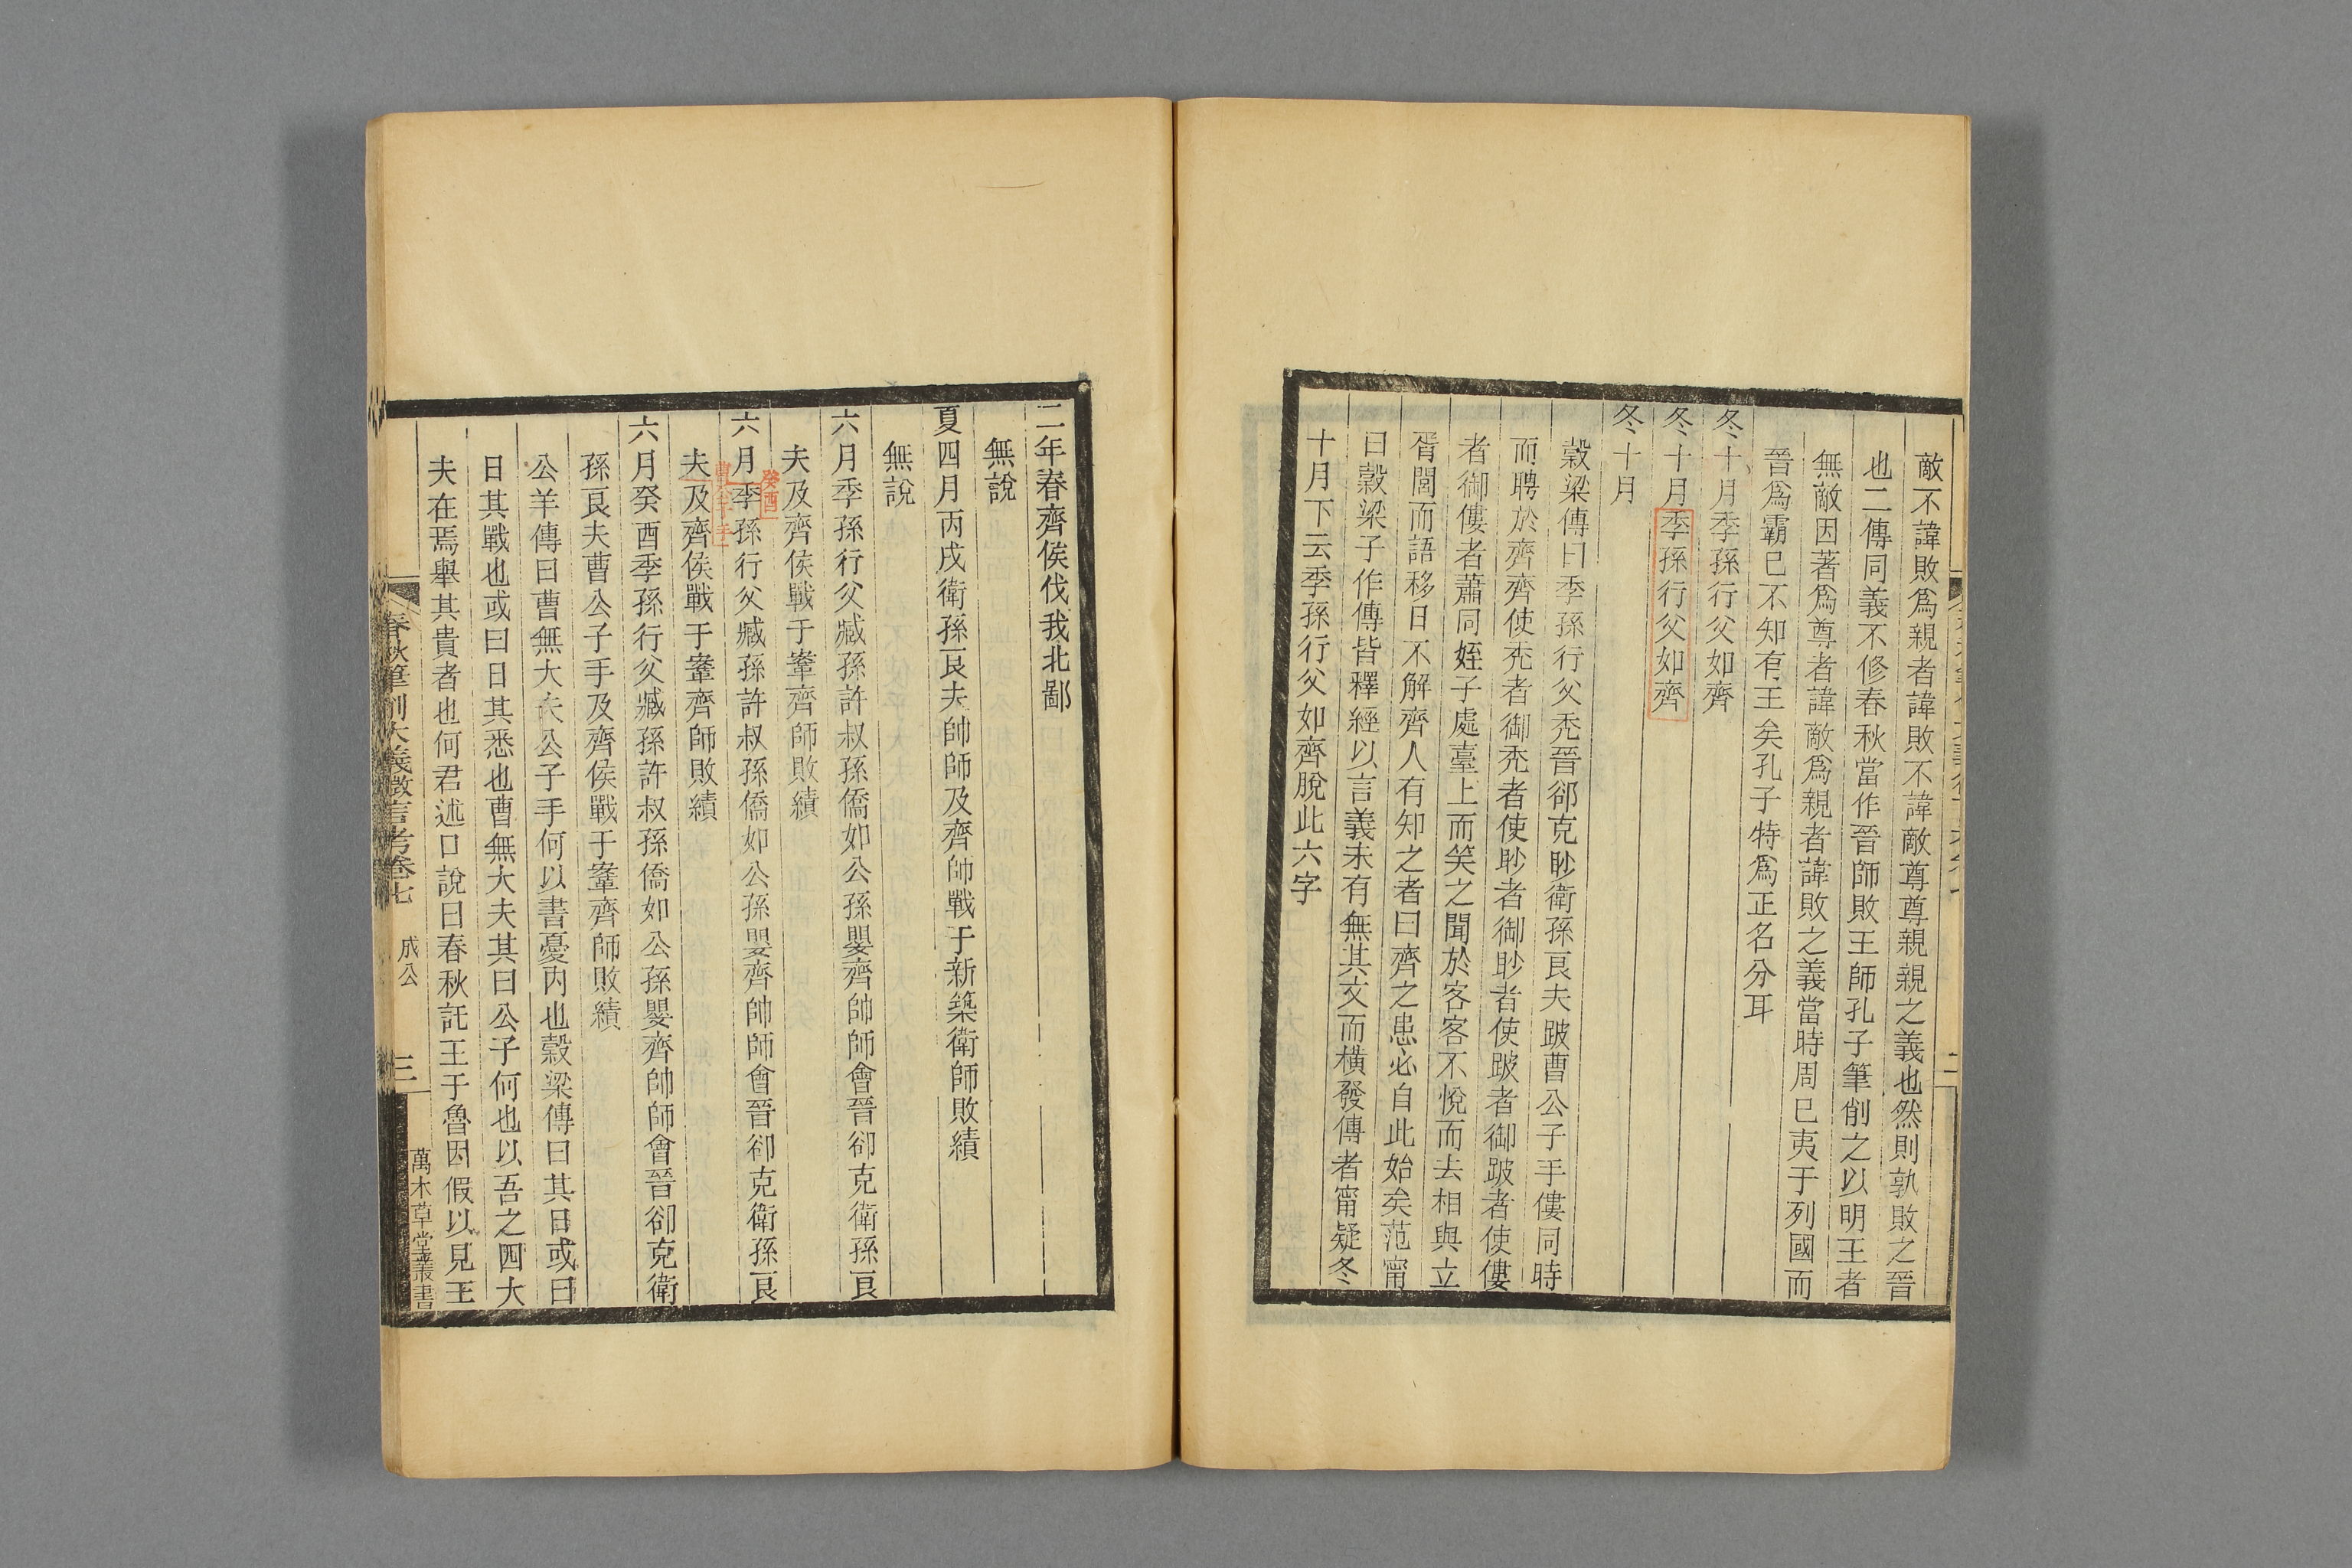 敵不諱敗爲親者諱敗不諱敵尊尊親親之義也然則孰敗之晉
也二傳同義不修春秋當作晉師敗王師孔子筆削之以明王者
無敵因著爲尊者諱敵爲親者諱敗之義當時周已夷于列國而
晉爲霸已不知有王矣孔子特爲正名分耳
冬十月季孫行父如齊
冬十月季孫行父如齊
冬十月
穀梁傳曰季孫行父禿晉郤克眇衛孫良夫跛曹公子手僂同時
而聘於齊齊使禿者御禿者使眇者御眇者使跛者御跛者使僂
者御僂者蕭同姪子處臺上而笑之聞於客客不悅而去相與立
胥閭而語移日不解齊人有知之者曰齊之患必自此始矣范甯
曰穀梁子作傳皆釋經以言義未有無其文而橫發傳者甯疑冬
十月下云季孫行父如齊脫此六字
二
二年春齊侯伐我北鄙
無說
夏四月丙戌衛孫良夫帥師及齊師戰于新築衛師敗績
無說
六月季孫行父臧孫許叔孫僑如公孫嬰齊帥師會晉郤克衛孫良
夫及齊侯戰于鞌齊師敗績
癸酉
六月季孫行父臧孫許叔孫僑如公孫嬰齊帥師會晉郤克衛孫良
曹公子手
夫及齊侯戰于鞌齊師敗績
六月癸酉季孫行父臧孫許叔孫僑如公孫嬰齊帥師會晉郤克衛
孫良夫曹公子手及齊侯戰于鞌齊師敗績
公羊傳曰曹無大夫公子手何以書憂內也穀梁傳曰其日或曰
日其戰也或曰日其悉也曹無大夫其曰公子何也以吾之四大
夫在焉舉其貴者也何君述口說曰春秋託王于魯因假以見王
春秋筆削大義微言考卷七 成公 三 萬木草堂叢書